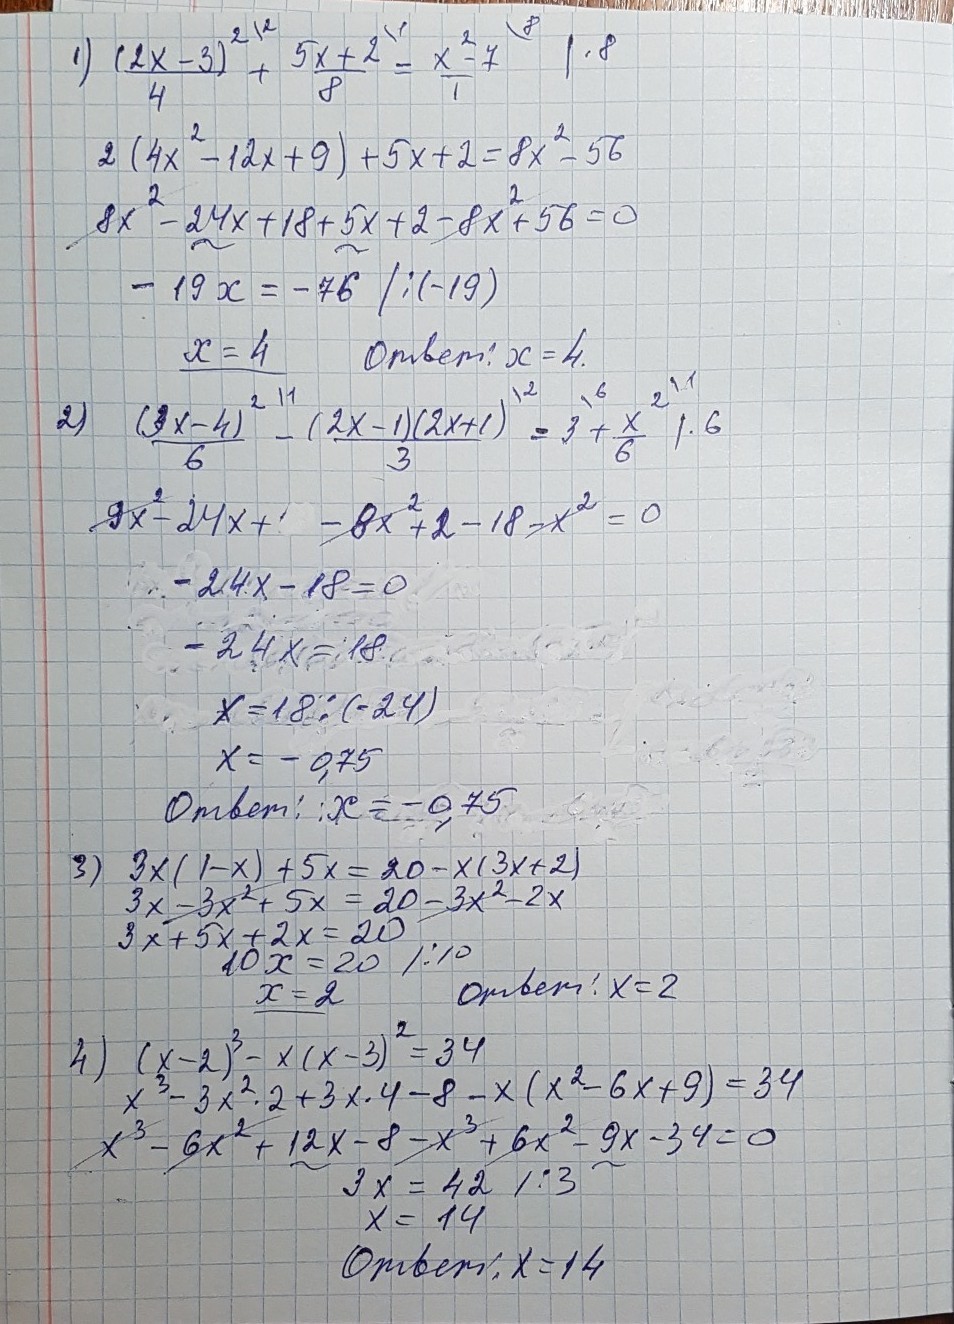 1) (2x-3)²\2 / 4 + 5x+2\1 / 8 = x²-7\8 / 1 |·8
2(4x²-12x+9)+5x+2=8x²-56
8x²-24x+18+5x+2-8x²+56=0
-19x=-76 /:(-19)
x=4 Ответ: x=4.
2) (3x-4)²\1 / 6 - (2x-1)(2x+1)\2 / 3 = 3\6 + x²\1 / 6 |·6
9x²-24x+ -8x²+2-18-x²=0
-24x-18=0
-24x=18
x=18:(-24)
x=-0,75
Ответ: x=-0,75
3) 3x(1-x)+5x=20-x(3x+2)
3x-3x²+5x=20-3x²-2x
3x+5x+2x=20
10x=20 /:10
x=2 Ответ: x=2
4) (x-2)³-x(x-3)²=34
x³-3x²·2+3x·4-8-x(x²-6x+9)=34
x³-6x²+12x-8-x³+6x²-9x-34=0
3x=42 /:3
x=14
Ответ: x=14